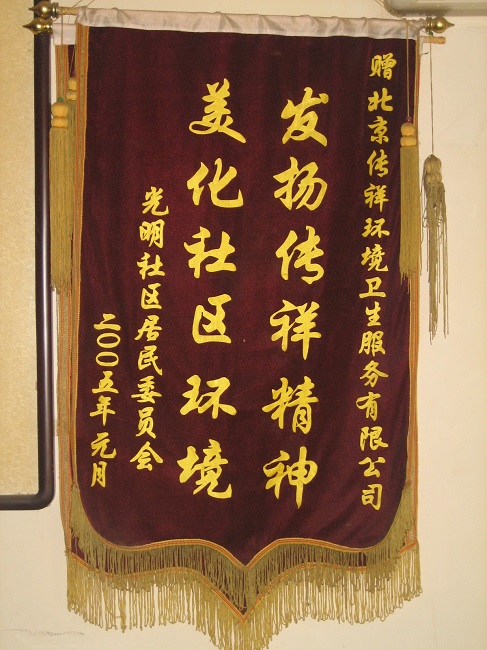 赠北京传祥环境卫生服务有限公司
发扬传祥精神
美化社区环境
光明社区居民委员会
二〇〇五年元月